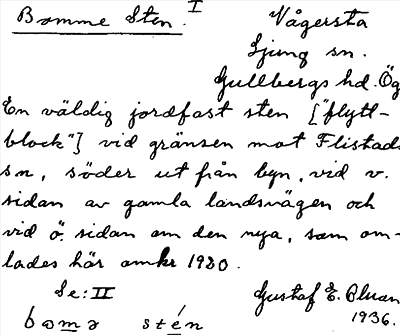 Bomme Sten. I
Vågersta
Ljung sn.
Gullbergs hd. Ög
En väldig jordfast sten ["flytt-
block"] vid gränsen mot Flistads
sn, söder ut från byn, vid v.
sidan av gamla landsvägen och
vid ö. sidan om den nya, som om-
lades här omkr 1930.
Se: II
Gustaf E. Olsson
1936.
bomə stén